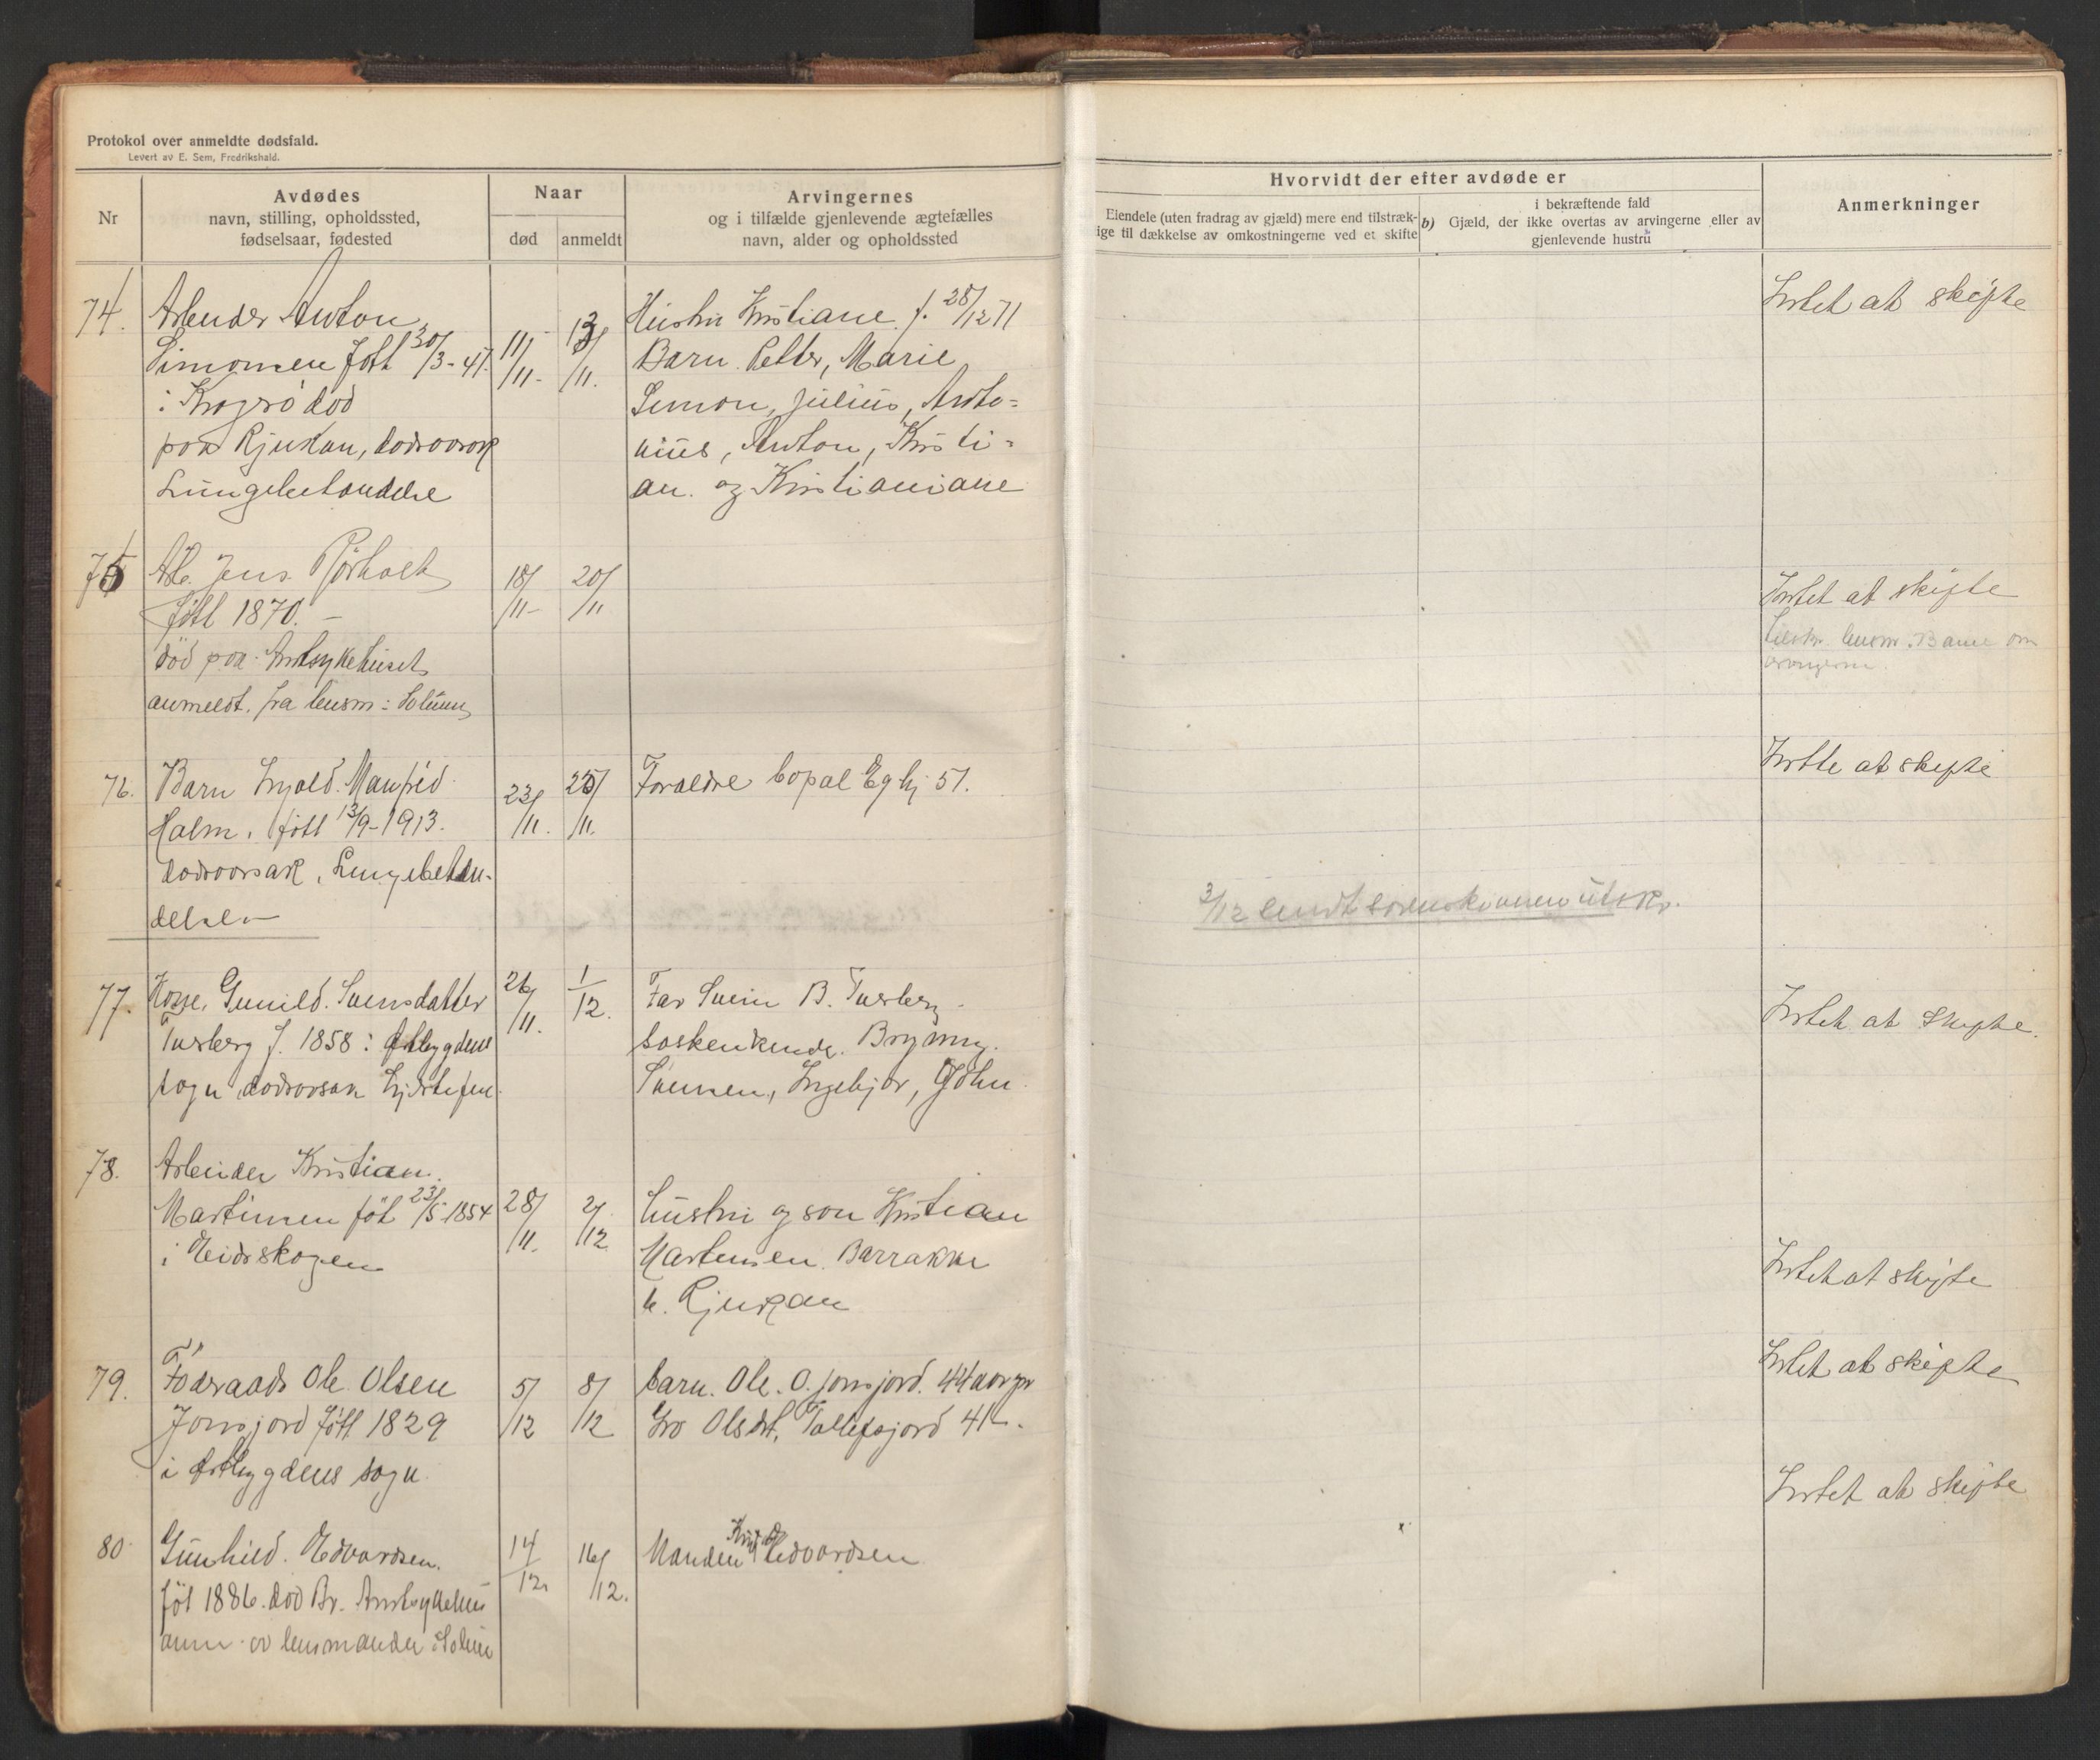 Protokol over anmeldte dødsfald.
Levert av E. Sem, Fredrikshald.
Nr
Avdødes
navn, stilling, opholdssted,
fødselsaar, fødested
Naar
død
anmeldt
Arvingernes
og i tilfælde gjenlevende ægtefælles
navn, alder og opholdssted
Hvorvidt der efter avdøde er
Eiendele (uten fradrag av gjæld) mere end tilstræk-
ige til dækkelse av omkostningerne ved et skifte
i bekræftende fald
b) Gjæld, der ikke overtas av arvingerne eller av
gjenlevende hustru
Anmerkninger
74.
Arbeider Anton
Simonsen født 30/3-47.
i Kragerø død
paa Rjukan, dødsaarsak
Lungebetændelse
11/11-
13/11.
Hustru Kristiane f. 28/12 71
Barn Petter, Marie
Simon, Julius, Anto=
nius, Anton, Kristi=
an. og Kristianiane
Intet at skifte
75
Arb. Jens Rørholt
født 1870. -
død paa Amtsykehuset
anmeldt. fra lensm i Solum
18/11-
20/11
Intet at skifte
tilskr. lensm. Bamle om
arvingerne.
76.
Barn Manfred
Halm, født 13/9-1913.
dødsaarsak, Lungebetæn-
delse
23/11.
25/11.
Foraldre bopal 51.
Intet at skifte
3/12 sendt sorenskriveren utskr.
77.
Gunild. Svensdatter
Tveberg f. 1858 i Østbygdens
sogn dødsaarsak Hjertefeil
26/11.
1/12.
Far Svein B. Tveberg
Søskenkende. Brynning
Svensen, Ingebjør, Gøhn
Intet at skifte.
78.
Arbeider Kristian
Martinsen føt 23/5-1854
i Eidskogen
28/11.
2/12
hustru og søn Kristian
Martensen. Barrakke
6. Rjukan
Intet at skifte
79.
Føderaads Ole Olsen
Jonsjord født 1829
i Østbygdens sogn
5/12
8/12
barn. Ole. O. Jonsjord. 44 aar gr
Gro Olsdt. Tollefsjord 41 -.
Intet at skifte
80
Gunhild. Edvardsen.
føt 1886. død Br. Amtsykehus
anm. av lensmanden i Solum
14/12
16/12.
Manden Knut Edvardsen
Intet at skifte